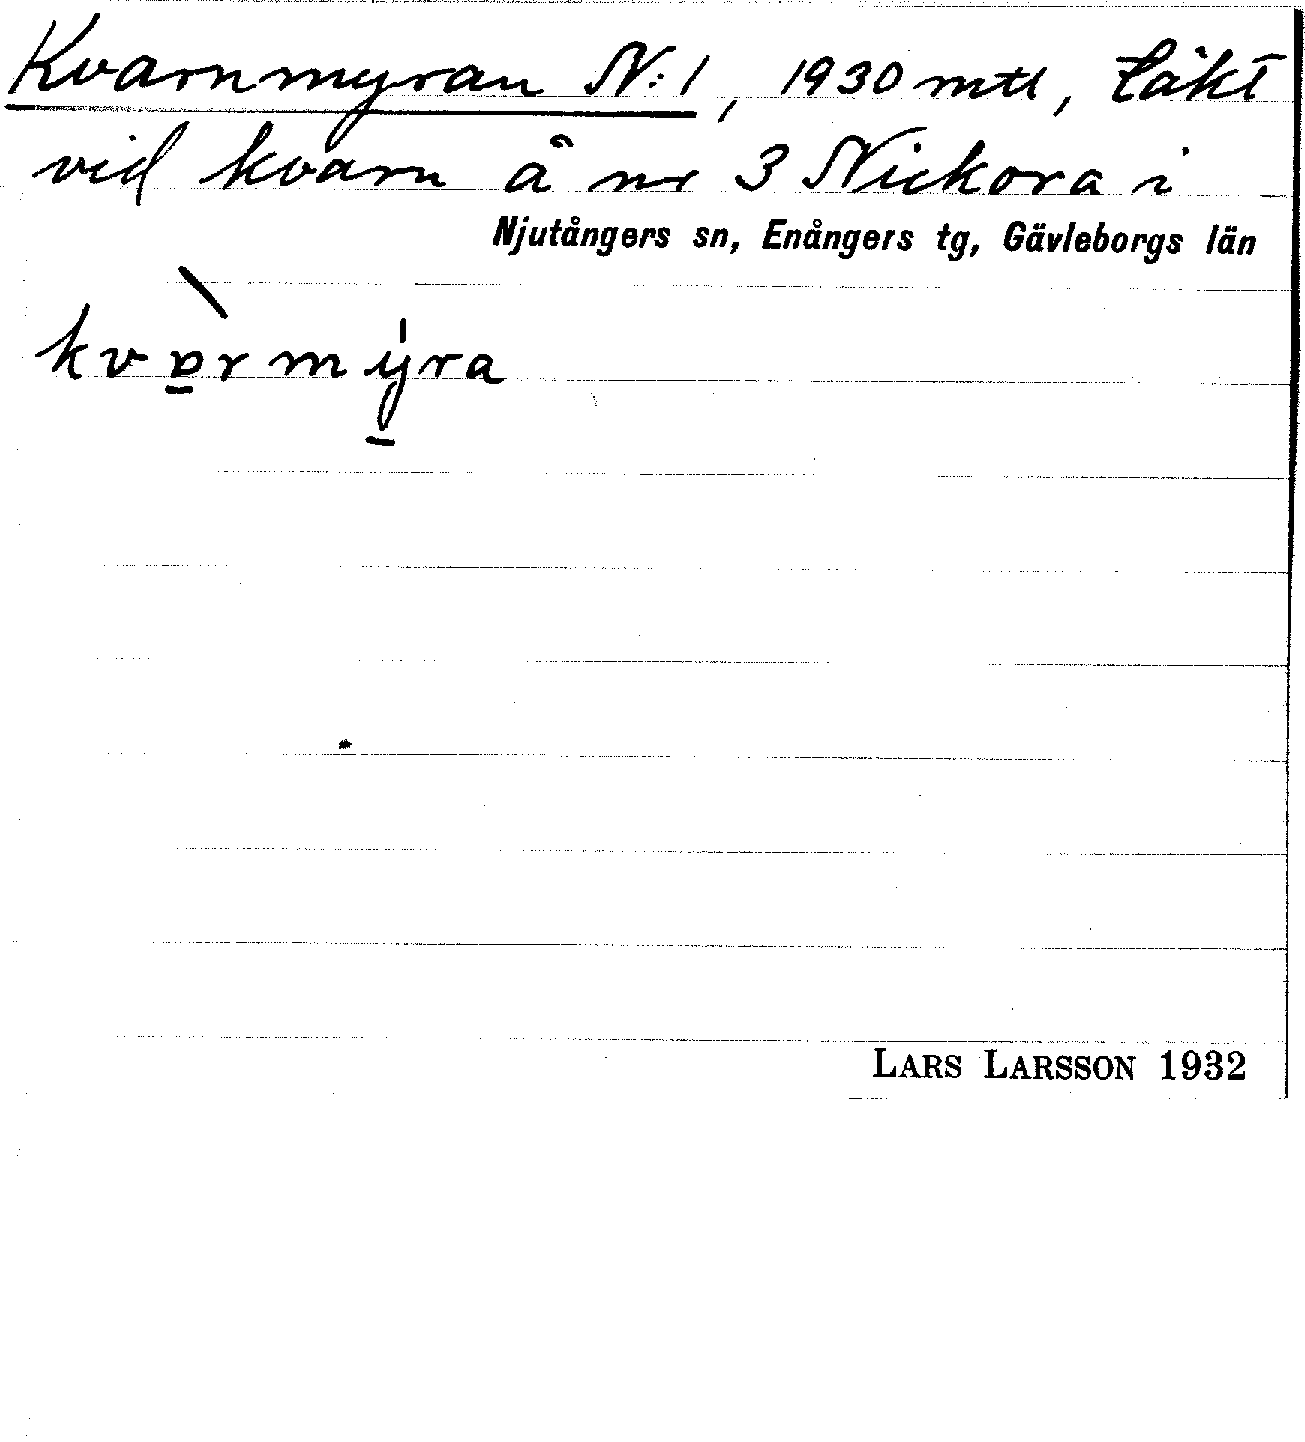 Kvarnmyran N:1, 1930 mtl, täkt
vid kvarn å nr 3 Nickora i
Njutångers sn, Enångers tg, Gävleborgs län
kvɒ̠̀rmý̠ra
LARS LARSSON 1932